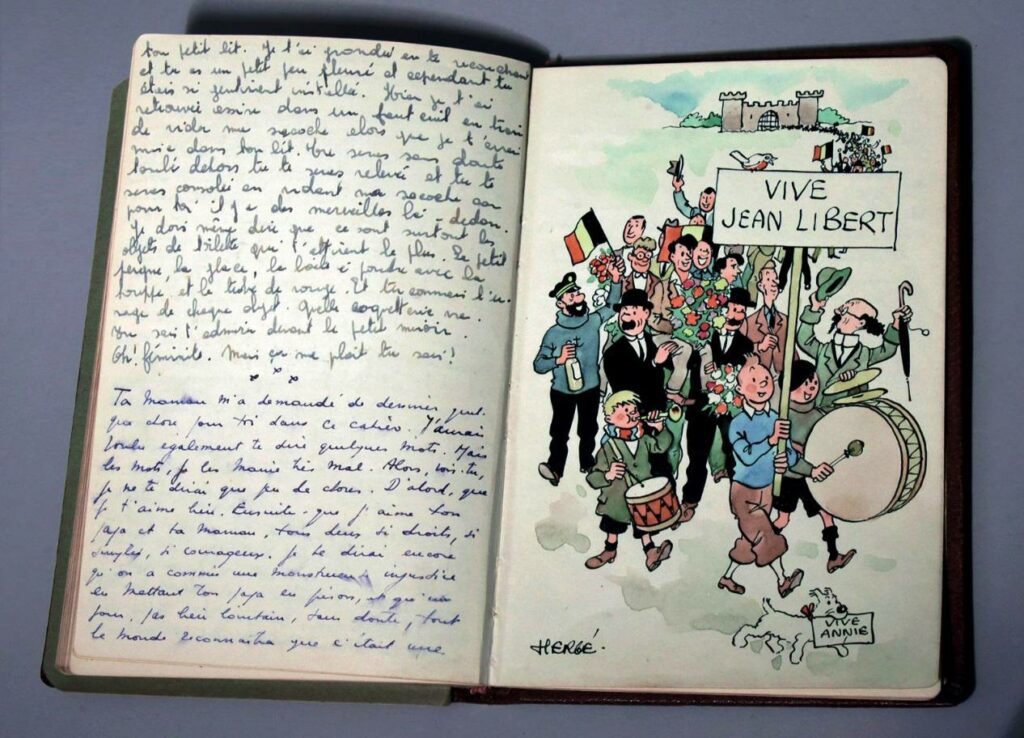 ton petit lit. Je t'ai grondée en te recouchant
et tu as un petit peu pleuré et cependant tu
étais si gentiment installée. Hier je t'ai
retrouvée assise dans un fauteuil en train
de vider ma sacoche alors que je t'avais
mise dans ton lit. Une
dehors tu te seras relevée et tu te
seras consolée en vidant ma sacoche car
pour toi il y a des merveilles là-dedans.
Je dois même dire que ce sont surtout les
objets de toilette qui t'attirent le plus. Le petit
peigne, la glace, la boîte à poudre avec la
houppe, et le tube de rouge. Et tu connais l'u-
sage de chaque objet. Quelle coquetterie
t'admirer devant le petit miroir.
Oh! féminité. Mais ça me plaît tu sais!
x x x
Ta Maman m'a demandé de dessiner quel-
que chose pour toi dans ce cahier. J'aurais
voulu également te dire quelques mots. Mais
les mots, je les manie très mal. Alors, vois-tu,
je ne te dirai que peu de choses. D'abord, que
je t'aime bien. Ensuite, que j'aime ton
papa et ta Maman, tous deux si droits, si
simples, si courageux. Je te dirai encore
qu'on a commis une monstrueuse injustice
en mettant ton papa en prison, et qu'un
jour, pas bien lointain, sans doute, tout
le monde reconnaîtra que c'était une
VIVE
JEAN LIBERT
VIVE
ANNIE
HERGÉ.